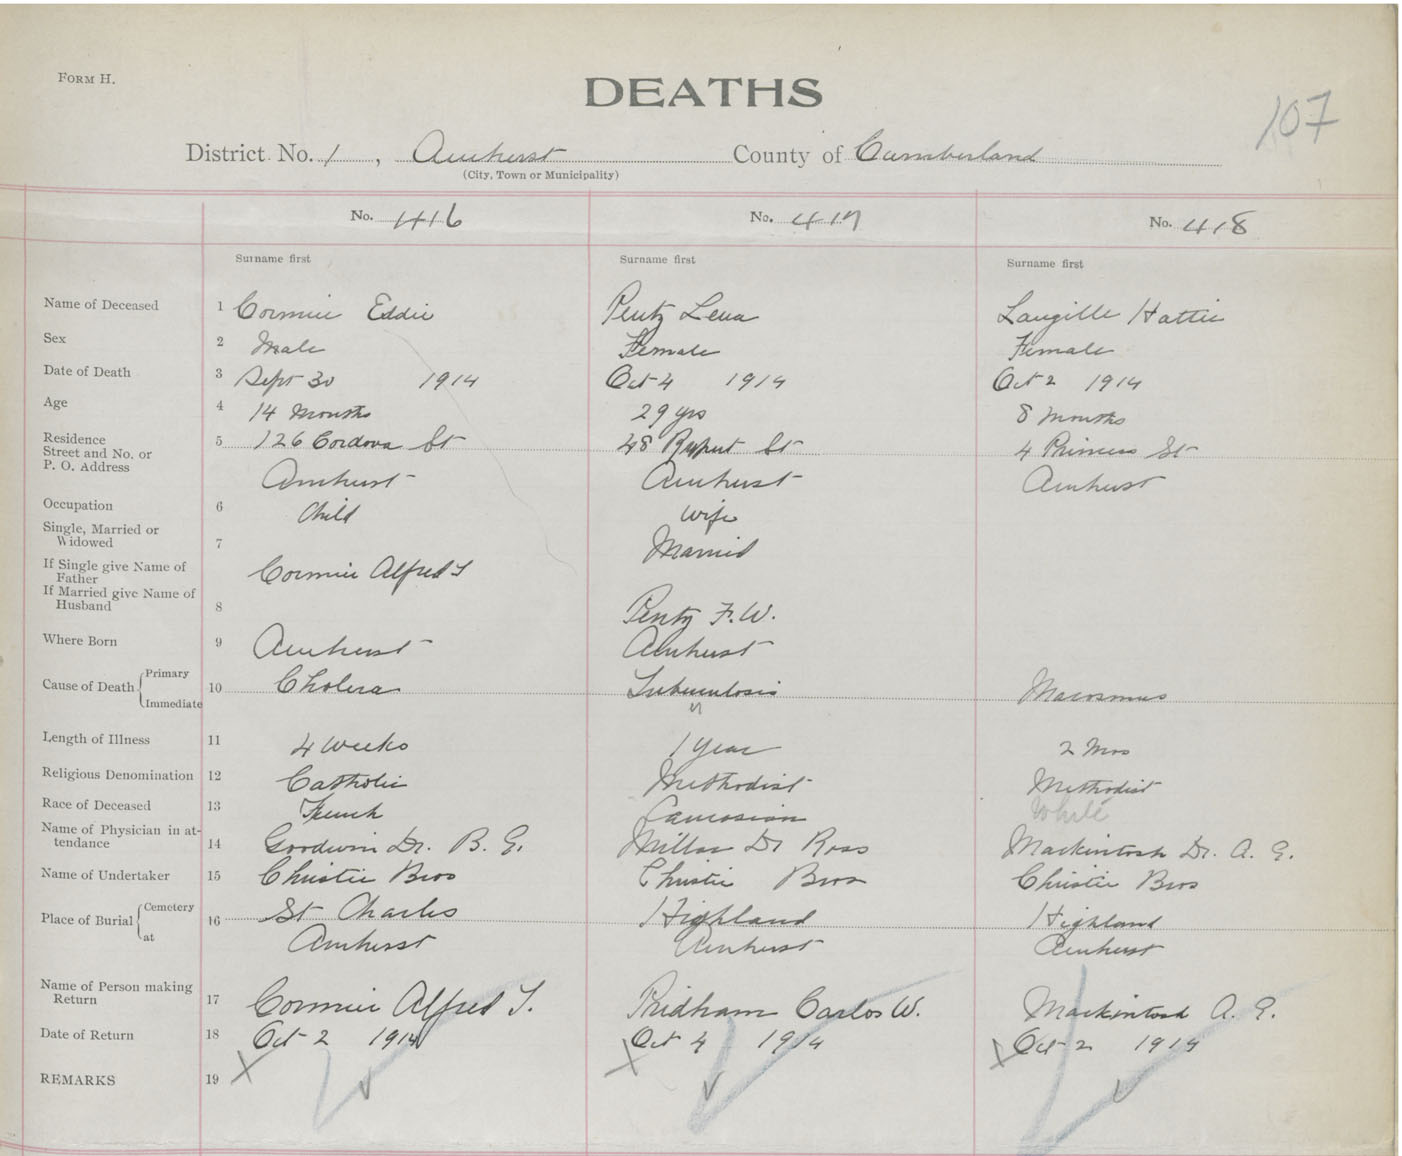 FORM H.
DEATHS
107
District No. 1, Amherst County of Cumberland
(City, Town or Municipality)
No. 416 No. 417 No. 418
Surname first Surname first Surname first
Name of Deceased 1 Cormier Eddie Pentz Lena Langille Hattie
Sex 2 Male Female Female
Date of Death 3 Sept 30 1914 Oct 4 1914 Oct 2 1914
Age 4 14 Months 29 yrs 8 months
Residence
Street and No. or 5 126 Cordova St 48 Rupert St 4 Princess St
P. O. Address
Amherst Amherst Amherst
Occupation 6 Child Wife
Single, Married or
Widowed 7 Married
If Single give Name of
Father Cormier Alfred T
If Married give Name of
Husband 8 Pentz F. W.
Where Born 9 Amherst Amherst
Cause of Death Primary
10 Cholera Tuberculosis Marasmus
Immediate
Length of Illness 11 4 Weeks 1 Year 2 Mos
Religious Denomination 12 Catholic Methodist Methodist
Race of Deceased 13 French Caucasian White
Name of Physician in at-
tendance 14 Goodwin Dr. B. E. Millar Dr Ross Mackintosh Dr. A. E.
Name of Undertaker 15 Christie Bros Christie Bros Christie Bros
Place of Burial Cemetery
16 St Charles Highland Highland
at Amherst Amherst Amherst
Name of Person making
Return 17 Cormier Alfred T. Pridham Carlos W. Mackintosh A. E.
Date of Return 18 Oct 2 1914 Oct 4 1914 Oct 2 1914
REMARKS 19